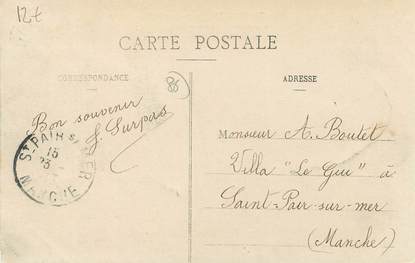 12t
CARTE POSTALE
CORRESPONDANCE
86
ADRESSE
Bon souvenir
J. Surpas
ST PAIR S/ MER
15
23
MANCHE
Monsieur A. Boutet
Villa "Le Gui" à
Saint-Pair-sur-mer
(Manche)